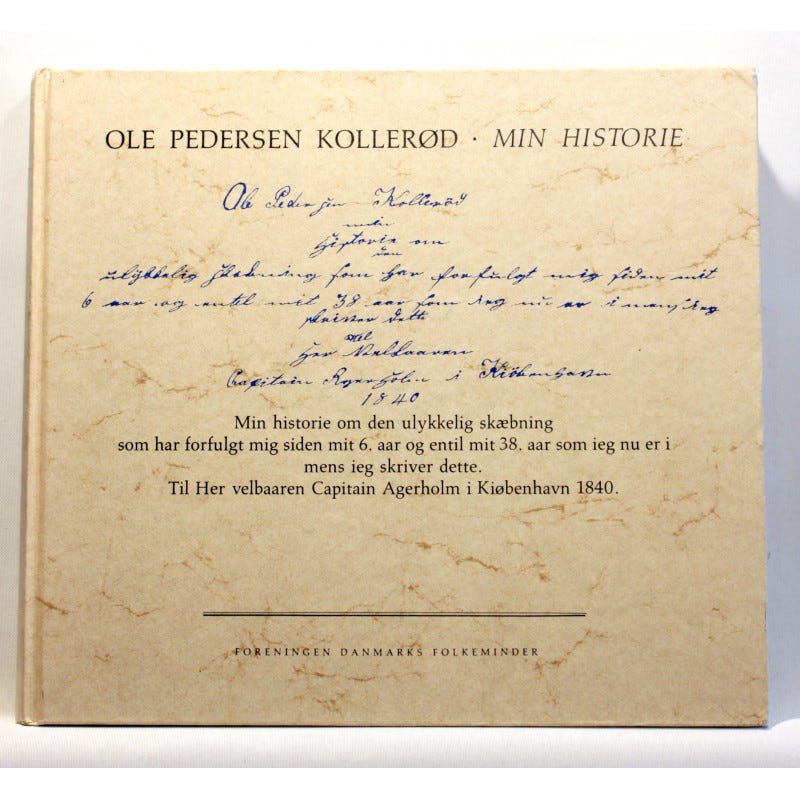 OLE PEDERSEN KOLLERØD · MIN HISTORIE
Ole Pedersen Kollerød
min
Historie om
den
ulykkelig skæbning som har forfulgt mig siden mit
6 aar og entil mit 38 aar som ieg nu er i mens ieg
skriver dette
til
Her Velbaaren
Capitain Agerholm i Kiøbenhavn
1840
Min historie om den ulykkelig skæbning
som har forfulgt mig siden mit 6. aar og entil mit 38. aar som ieg nu er i
mens ieg skriver dette.
Til Her velbaaren Capitain Agerholm i Kiøbenhavn 1840.
FORENINGEN DANMARKS FOLKEMINDER